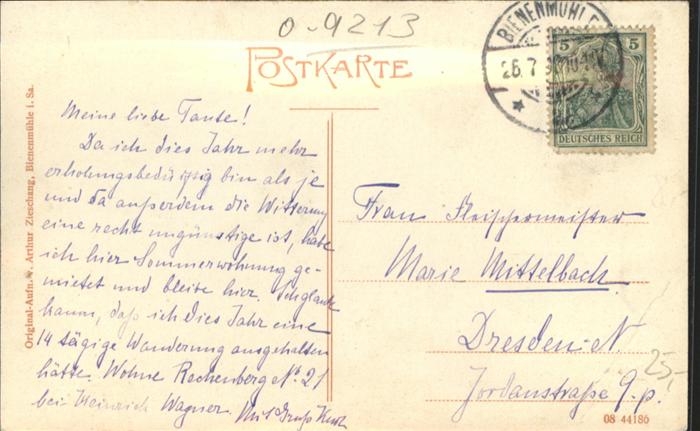 0-9213
POSTKARTE
BIENENMÜHLE
5 5
DEUTSCHES REICH
Original-Aufn. v. Arthur Zieschang, Bienenmühle i. Sa.
Meine liebe Tante!
Da ich dies Jahr mehr
erholungsbedürftig bin als je
und da außerdem die Witterung
eine recht ungünstige ist, habe
ich hier Sommerwohnung ge-
mietet und bleibe hier. Ich glaube
kaum, daß ich dies Jahr eine
14 tägige Wanderung ausgehalten
hätte. Wohne Rechenberg No. 21
bei Heinrich Wagner. Mit Gruß Kurt
Frau Fleischermeister
Marie Mittelbach
Dresden-N.
Jordanstraße 9.p.
25,-
08 44186